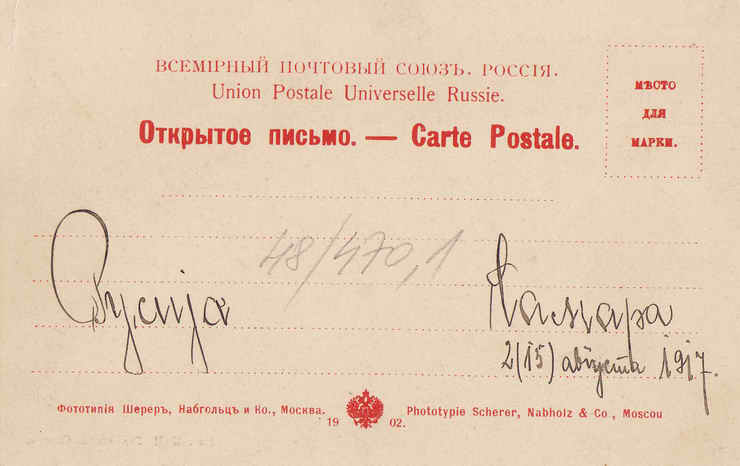 ВСЕМІРНЫЙ ПОЧТОВЫЙ СОЮЗЪ. РОССІЯ.
Union Postale Universelle Russie.
Открытое письмо. — Carte Postale.
МѢСТО
ДЛЯ
МАРКИ.
48/470,1
Русија
2(15) августа 1917.
Фототипія Шереръ, Набгольцъ и Ко., Москва.
Phototypie Scherer, Nabholz & Co, Moscou
1902.